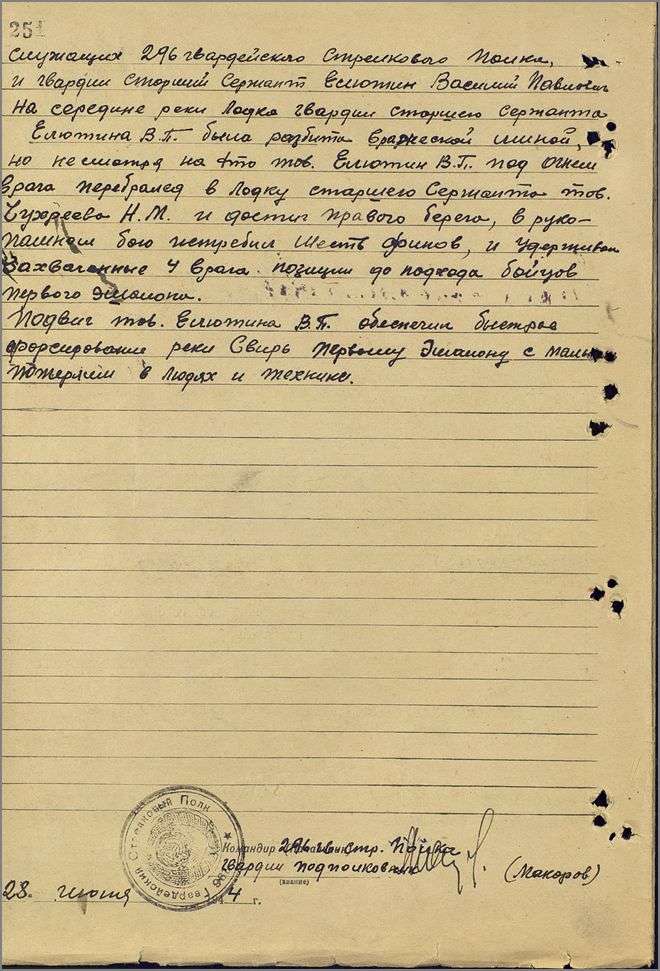 251
служащих 296 гвардейского Стрелкового Полка,
и гвардии Старший Сержант Елютин Василий Павлович
на середине реки лодка гвардии старшего Сержанта
Елютина В.П. была разбита вражеской миной,
но несмотря на это тов. Елютин В.П. под огнем
врага перебрался в лодку старшего Сержанта тов.
Н.М. и достиг правого берега, в руко-
пашном бою истребил шесть финов, и удерживал
Захваченные у врага позиции до подхода бойцов
первого эшалона.
Подвиг тов. Елютина В.П. обеспечил быстрое
форсирование реки Свирь первому эшалону с малыми
потерями в людях и технике.
296 Гвардейский Стрелковый Полк
Командир 296 гв. Стр. Полка
Гвардии подполковник (Макаров)
(звание)
23. июня 4 г.